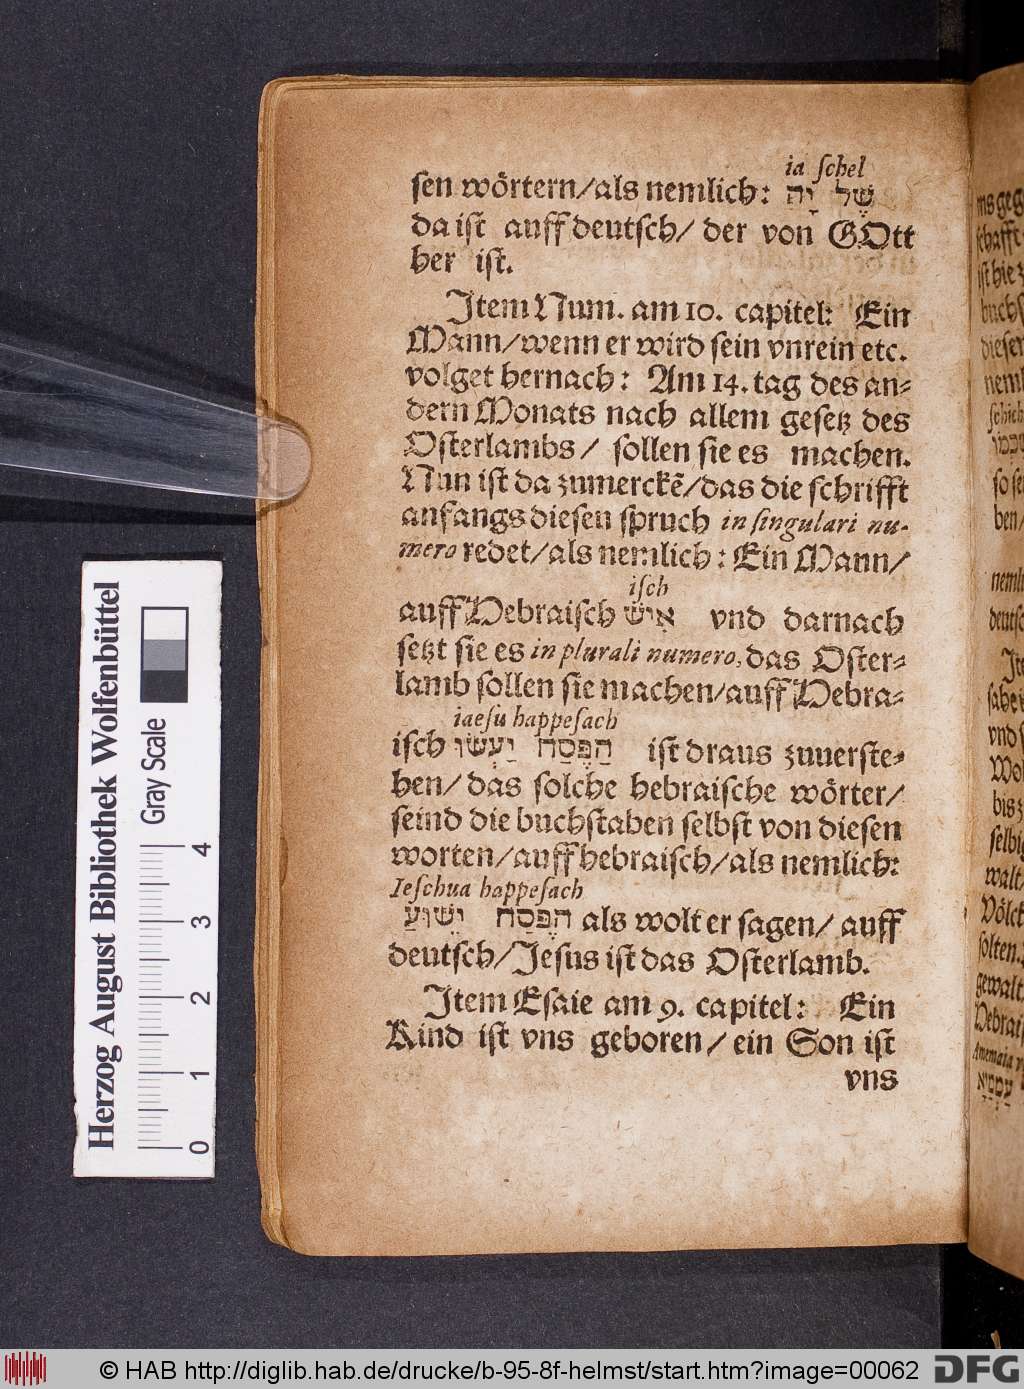 ia ſchel
ſen wörtern/als nemlich: שֶׁל יָה
da iſt auff deutſch/ der von GOtt
her iſt.
Item Num. am 10. capitel: Ein
Mann/wenn er wird ſein vnrein etc.
volget hernach: Am 14. tag des an⸗
dern Monats nach allem geſetz des
Oſterlambs/ ſollen ſie es machen.
Nun iſt da zumerckē/das die ſchrifft
anfangs dieſen ſpruch in ſingulari nu-
mero redet/als nemlich: Ein Mann/
iſch
auff Hebraiſch אִישׁ vnd darnach
ſetzt ſie es in plurali numero, das Oſter⸗
lamb ſollen ſie machen/auff Hebra⸗
iaeſu happeſach
iſch הַפֶּסַח יַעְשׂוּ iſt draus zuuerſte⸗
hen/ das ſolche hebraiſche wörter/
ſeind die buchſtaben ſelbſt von dieſen
worten/auff hebraiſch/als nemlich:
Ieſchua happeſach
הַפֶּסַח יֵשׁוּעַ als wolt er ſagen/ auff
deutſch/Jeſus iſt das Oſterlamb.
Item Eſaie am 9. capitel: Ein
Kind iſt vns geboren/ein Son iſt
vns
Herzog August Bibliothek Wolfenbüttel
Gray Scale
0 1 2 3 4
© HAB http://diglib.hab.de/drucke/b-95-8f-helmst/start.htm?image=00062
DFG